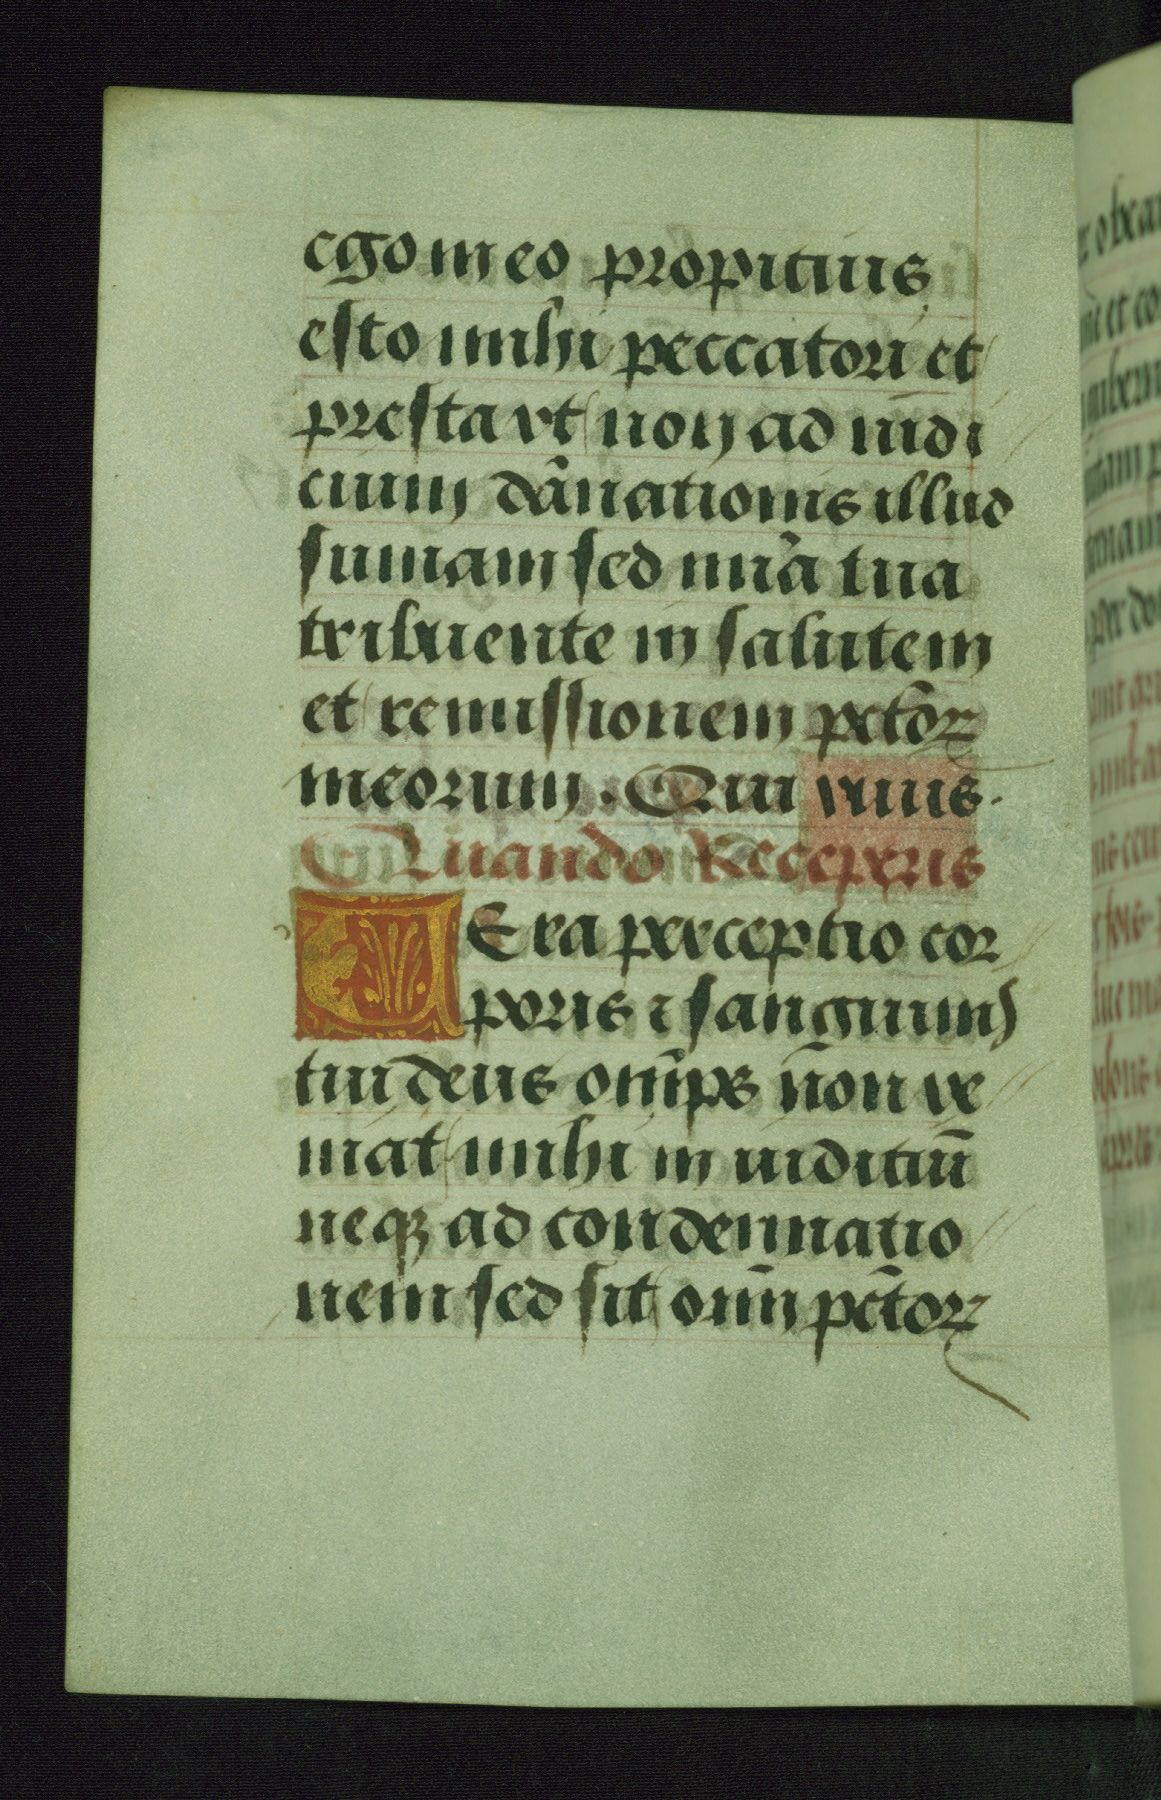 ego in eo propitius
esto mihi peccatori et
presta vt non ad iudi
cium dānationis illud
sumam sed mīa tua
tribuente in salutem
et remissionem pctōꝝ
meorum. Qui viuis.
Quando Receperis
VEra perceptio cor
poris ⁊ sanguinis
tui deus omīps nōn ve
niat mihi in iuditiū
neqꝫ ad condennatio
nem sed sit oīm pctōꝝ